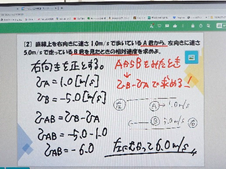 (2) 直線上を右向きに速さ 1.0m/s で歩いている A 君から、左向きに速さ
5.0m/s で走っている B 君を見たときの相対速度を求めよ。
右向きを正とする。
vA = 1.0[m/s]
vB = -5.0[m/s]
vAB = vB - vA
vAB = -5.0 - 1.0
vAB = -6.0
AからBを見たとき
vB - vAを求める!
A → 1.0m/s
B
左にむかって 6.0m/s